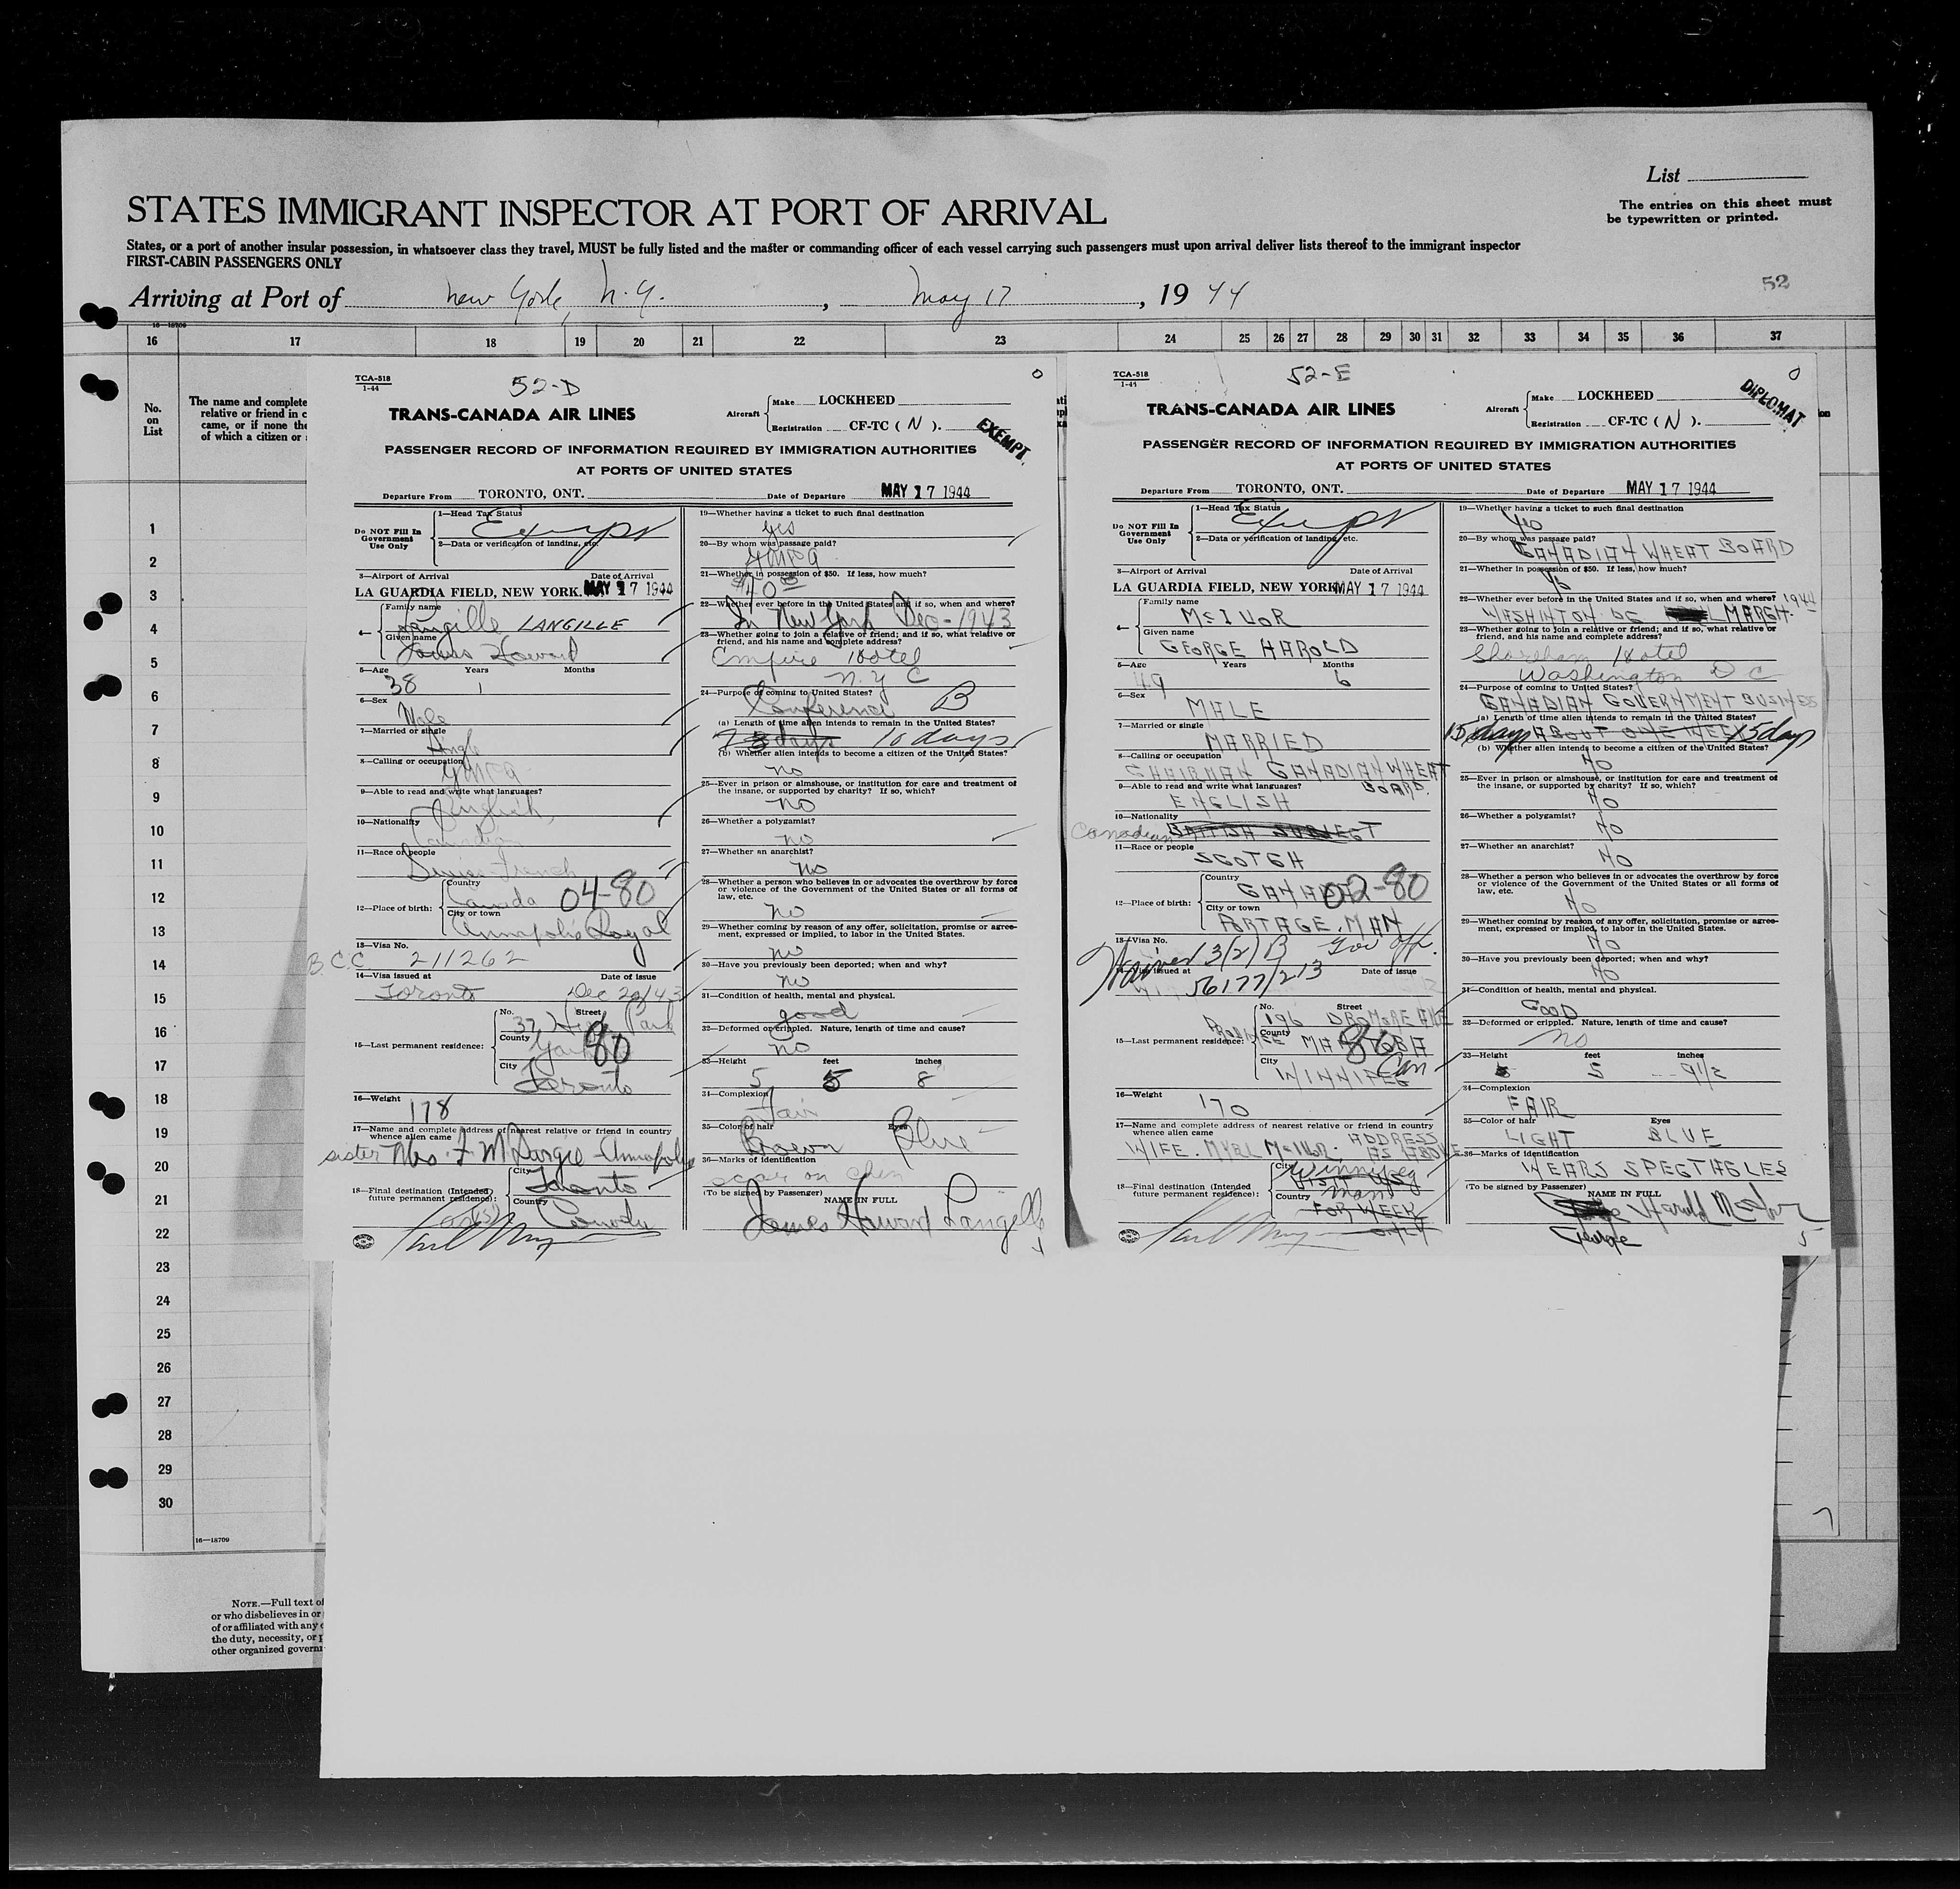 List
The entries on this sheet must
be typewritten or printed.
STATES IMMIGRANT INSPECTOR AT PORT OF ARRIVAL
States, or a port of another insular possession, in whatsoever class they travel, MUST be fully listed and the master or commanding officer of each vessel carrying such passengers must upon arrival deliver lists thereof to the immigrant inspector
FIRST-CABIN PASSENGERS ONLY
Arriving at Port of New York, N.Y. , May 17 , 19 44
52
16—18709
16 17 18 19 20 21 22 23 24 25 26 27 28 29 30 31 32 33 34 35 36 37
No.
on
List
The name and complete
relative or friend in c
came, or if none the
of which a citizen or
1
2
3
4
5
6
7
8
9
10
11
12
13
14
15
16
17
18
19
20
21
22
23
24
25
26
27
28
29
30
16—18709
NOTE.—Full text of
or who disbelieves in or
of or affiliated with any
the duty, necessity, or p
other organized governm
TCA-518
1-44
52-D
TRANS-CANADA AIR LINES
Aircraft
Make LOCKHEED
Registration CF-TC ( N ).
EXEMPT.
PASSENGER RECORD OF INFORMATION REQUIRED BY IMMIGRATION AUTHORITIES
AT PORTS OF UNITED STATES
Departure From TORONTO, ONT. Date of Departure MAY 17 1944
Do NOT Fill In
Government
Use Only
1—Head Tax Status
Exempt
2—Data or verification of landing, etc.
3—Airport of Arrival Date of Arrival
LA GUARDIA FIELD, NEW YORK. MAY 17 1944
4—
Family name
Langille LANGILLE
Given name
James Howard
5—Age Years Months
38 1
6—Sex
Male
7—Married or single
Single
8—Calling or occupation
YMCA
9—Able to read and write what languages?
English
10—Nationality
Canadian
11—Race or people
Swiss-French
12—Place of birth:
Country
Canada 04-80
City or town
Annapolis Royal
13—Visa No.
B.C.C 211262
14—Visa issued at Date of issue
Toronto Dec 29/43
15—Last permanent residence:
No. Street
37 High Park
County
York 80
City
Toronto
16—Weight
178
17—Name and complete address of nearest relative or friend in country
whence alien came
sister Mrs. F M Dargie - Annapolis
18—Final destination (Intended
future permanent residence):
City
Toronto
Country
Canada
19—Whether having a ticket to such final destination
yes
20—By whom was passage paid?
YMCA
21—Whether in possession of $50. If less, how much?
22—Whether ever before in the United States and if so, when and where?
In New York Dec-1943
23—Whether going to join a relative or friend; and if so, what relative or
friend, and his name and complete address?
Empire Hotel
N.Y C
24—Purpose of coming to United States?
Conference B
(a) Length of time alien intends to remain in the United States?
10 days
(b) Whether alien intends to become a citizen of the United States?
no
25—Ever in prison or almshouse, or institution for care and treatment of
the insane, or supported by charity? If so, which?
no
26—Whether a polygamist?
no
27—Whether an anarchist?
no
28—Whether a person who believes in or advocates the overthrow by force
or violence of the Government of the United States or all forms of
law, etc.
no
29—Whether coming by reason of any offer, solicitation, promise or agree-
ment, expressed or implied, to labor in the United States.
no
30—Have you previously been deported; when and why?
no
31—Condition of health, mental and physical.
good
32—Deformed or crippled. Nature, length of time and cause?
no
33—Height feet inches
5 8
34—Complexion
Fair
35—Color of hair Eyes
Brown Blue
36—Marks of identification
scar on chin
(To be signed by Passenger)
NAME IN FULL
James Howard Langille
TCA-518
1-44
52-E
TRANS-CANADA AIR LINES
Aircraft
Make LOCKHEED
Registration CF-TC ( N ).
DIPLOMAT
PASSENGER RECORD OF INFORMATION REQUIRED BY IMMIGRATION AUTHORITIES
AT PORTS OF UNITED STATES
Departure From TORONTO, ONT. Date of Departure MAY 17 1944
Do NOT Fill In
Government
Use Only
1—Head Tax Status
Exempt
2—Data or verification of landing, etc.
3—Airport of Arrival Date of Arrival
LA GUARDIA FIELD, NEW YORK MAY 17 1944
4—
Family name
McIVOR
Given name
GEORGE HAROLD
5—Age Years Months
49 6
6—Sex
MALE
7—Married or single
MARRIED
8—Calling or occupation
CHAIRMAN CANADIAN WHEAT
BOARD
9—Able to read and write what languages?
ENGLISH
10—Nationality
Canadian BRITISH SUBJECT
11—Race or people
SCOTCH
12—Place of birth:
Country
CANADA 02-80
City or town
PORTAGE. MAN
13—Visa No.
Waived 3/(2)/B Gov off.
14—Visa issued at Date of issue
56177/213
15—Last permanent residence:
No. Street
196 DROMORE AVE
County
MANITOBA 80
City
WINNIPEG Can
16—Weight
170
17—Name and complete address of nearest relative or friend in country
whence alien came
WIFE. MYRL McIVOR. ADDRESS
AS ABOVE
18—Final destination (Intended
future permanent residence):
City
Winnipeg
VISIT USA
Country
Man
FOR WEEK
ONLY
19—Whether having a ticket to such final destination
Yes
20—By whom was passage paid?
CANADIAN WHEAT BOARD
21—Whether in possession of $50. If less, how much?
Yes
22—Whether ever before in the United States and if so, when and where?
WASHINTON DC MARCH. 1944
23—Whether going to join a relative or friend; and if so, what relative or
friend, and his name and complete address?
Shoreham Hotel
Washington D C
24—Purpose of coming to United States?
CANADIAN GOVERNMENT BUSINESS
(a) Length of time alien intends to remain in the United States?
15 days ABOUT ONE WEEK 15 days
(b) Whether alien intends to become a citizen of the United States?
NO
25—Ever in prison or almshouse, or institution for care and treatment of
the insane, or supported by charity? If so, which?
NO
26—Whether a polygamist?
NO
27—Whether an anarchist?
NO
28—Whether a person who believes in or advocates the overthrow by force
or violence of the Government of the United States or all forms of
law, etc.
NO
29—Whether coming by reason of any offer, solicitation, promise or agree-
ment, expressed or implied, to labor in the United States.
NO
30—Have you previously been deported; when and why?
NO
31—Condition of health, mental and physical.
GOOD
32—Deformed or crippled. Nature, length of time and cause?
no
33—Height feet inches
5 9 1/2
34—Complexion
FAIR
35—Color of hair Eyes
LIGHT BLUE
36—Marks of identification
WEARS SPECTACLES
(To be signed by Passenger)
NAME IN FULL
Harold McIvor
George
5